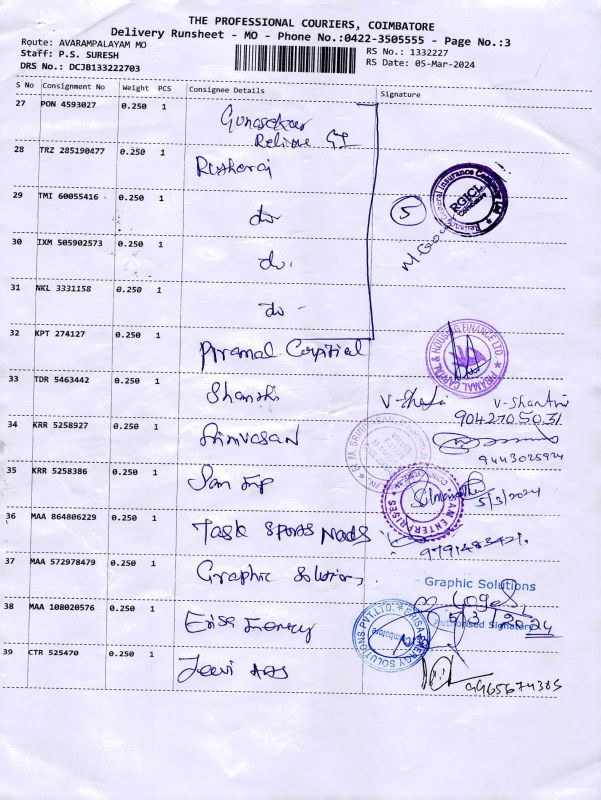 THE PROFESSIONAL COURIERS, COIMBATORE
Delivery Runsheet - MO - Phone No.:0422-3505555 - Page No.:3
Route: AVARAMPALAYAM MO
RS No.: 1332227
Staff: P.S. SURESH
RS Date: 05-Mar-2024
DRS No.: DCJB133222703
S No Consignment No Weight PCS Consignee Details Signature
27 PON 4593027 0.250 1 Gunasekar
Reliance GI
28 TRZ 285190477 0.250 1
29 TMI 60055416 0.250 1 do
5
RGICL
Coimbatore
30 IXM 505902573 0.250 1 do.
31 NKL 3331158 0.250 1 do
32 KPT 274127 0.250 1 Piramal Capital
PIRAMAL CAPITAL & HOUSING FINANCE LTD.
33 TDR 5463442 0.250 1 Shanthi
V-Shanthi
9042705031
34 KRR 5258927 0.250 1 Srinivasan
9443025924
35 KRR 5258386 0.250 1
5/3/2024
ENTERPRISES
36 MAA 864806229 0.250 1 Task Sports Nads
9791483421.
37 MAA 572978479 0.250 1 Graphic Solutions
Graphic Solutions
5/3/2024
Authorised Signatory
38 MAA 108020576 0.250 1 Erisa Energy
ERISA ENERGY SOLUTIONS PVT.LTD.
Coimbatore
39 CTR 525470 0.250 1
9965674385